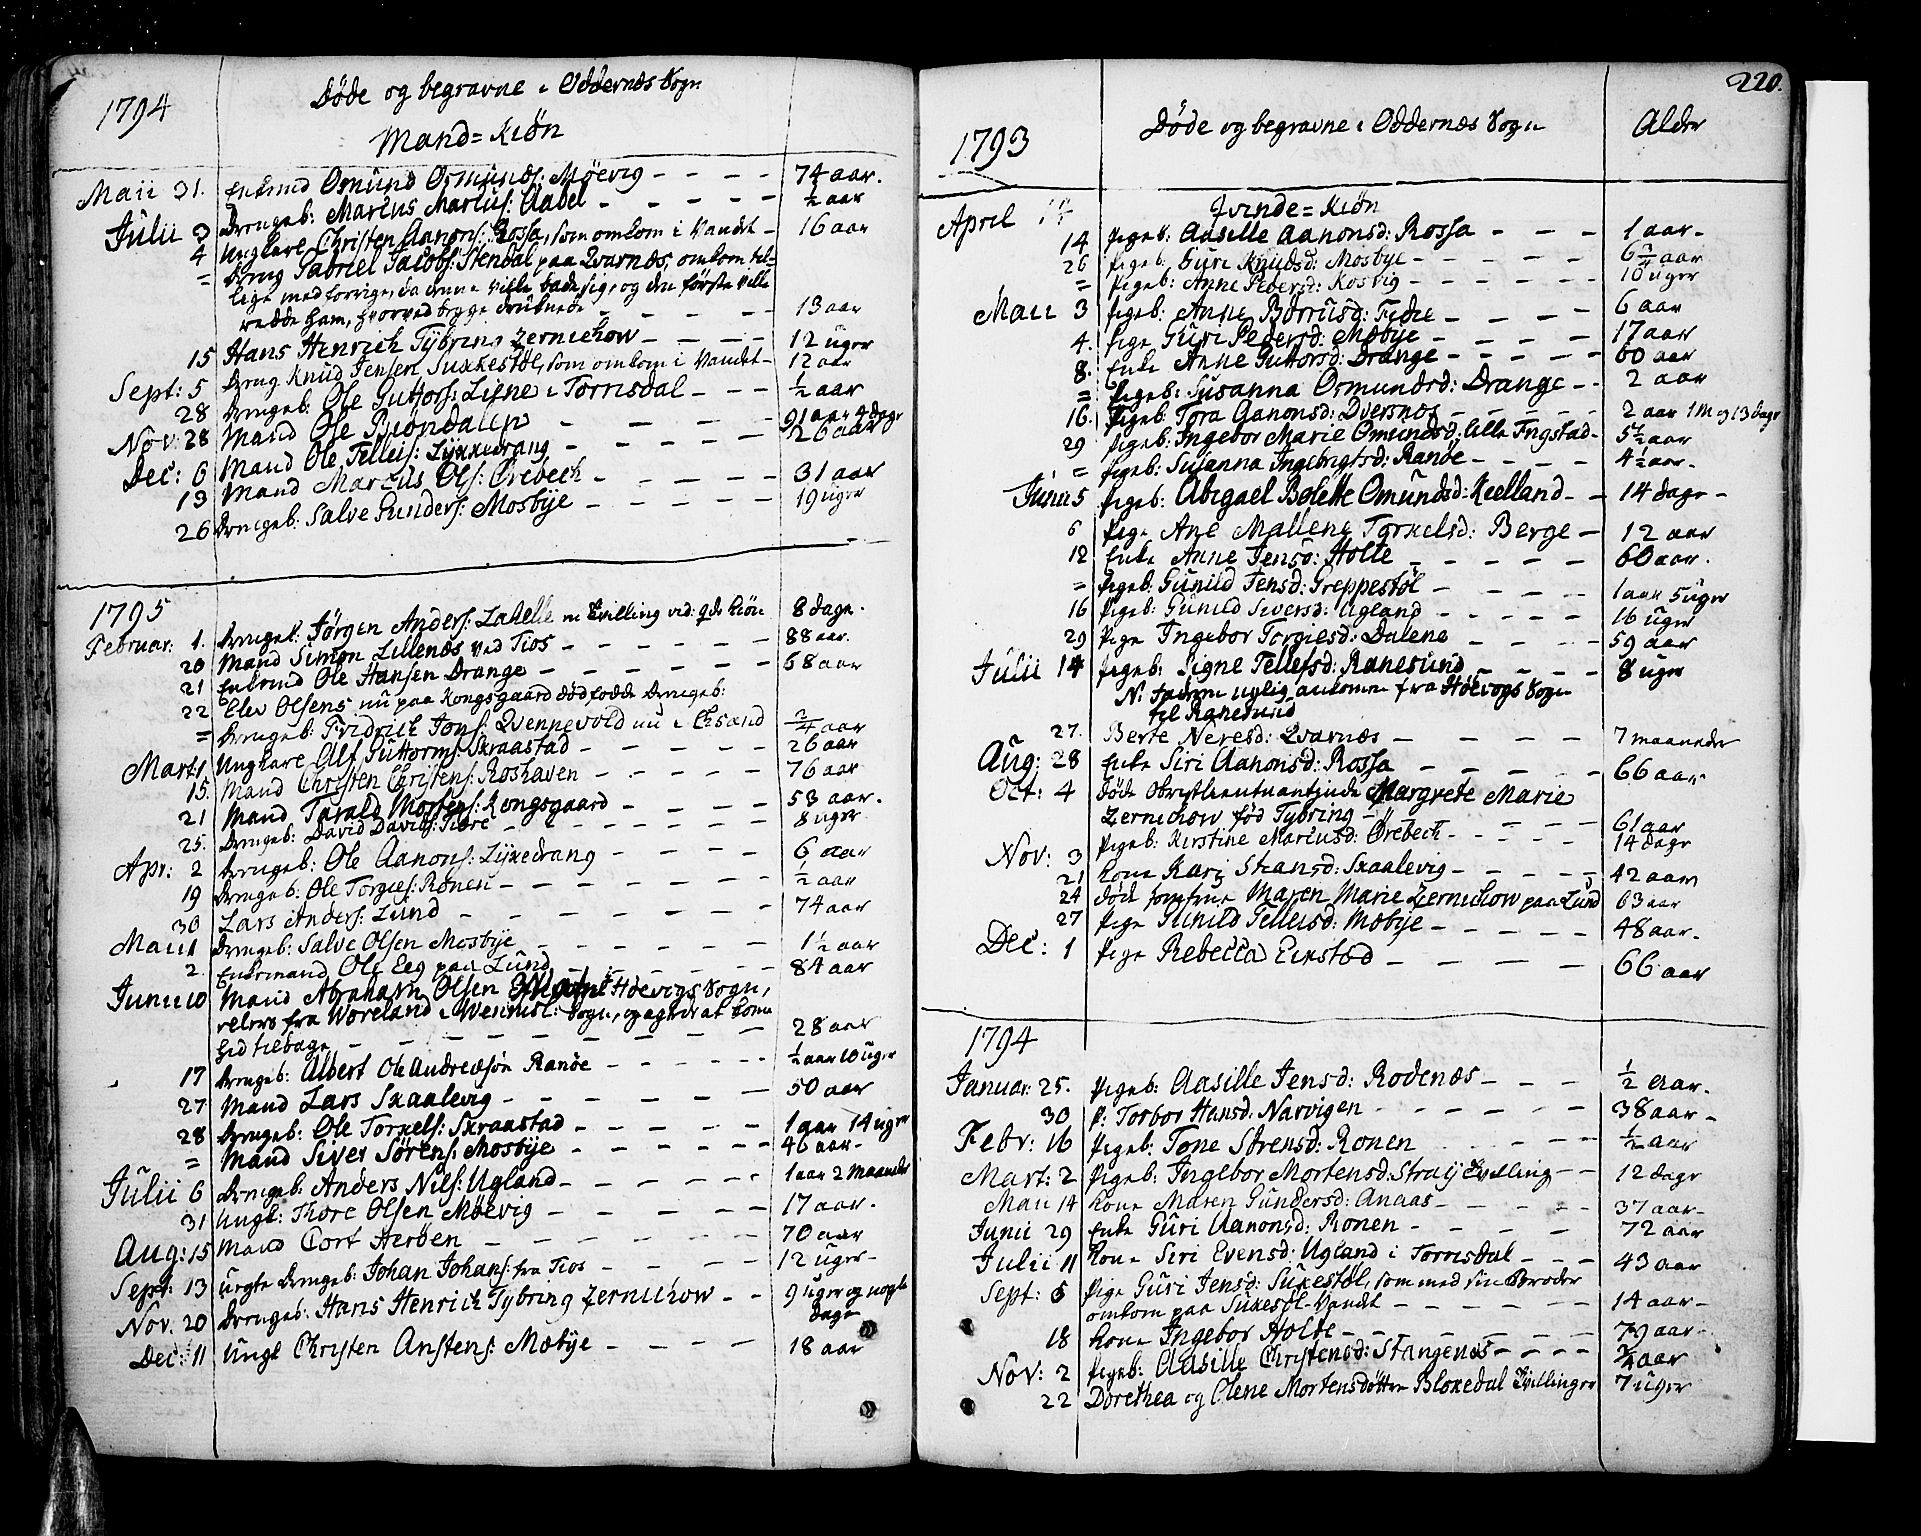 1794
Døde og begravne i Oddernæs Sogn
Mand=Kiøn
Maii 31. Enkemd Osmund Osmunds: Møevig - - - - 74 aar.
Julii 3 Drengeb: Marius Marius: Aabel - - - - - ½ aar
4 Ungkare Christen Aanons: Rossa, som omkom i Vandet - 16 aar
= Dreng Gabriel Jacobs: Stendal paa Qvarnæs, omkom til=
lige med forrige, da denne ville bade sig, og den første ville
redde ham, hvorved begge druknede - - - - 13 aar
15 Hans Henrich Tybring Zernichow - - - - 12 uger
Sept: 5 Dreng Knud Jensen Suxkestøl, som omkom i Vandet - 12 aar
28 Drengeb: Ole Guttors: Liene i Torrisdal - - - ½ aar
Nov: 28 Mand Ole Piøndalen - - - - 91 aar 4 dage
Dec: 6 Mand Ole Tellefs: Lyxkedrang - - - - 26 aar
13 Mand Marcus Ols: Ørebech - - - - 31 aar
26 Drengeb: Salve Gunders: Mosbÿe - - - - 19 uger
1795
Februar: 1. Drengeb: Jørgen Anders: Lahelle en Tvilling ved: qde kiøn 8 dage.
20 Mand Simon Lillenæs ved Tios - - - - - 88 aar.
21 Enkemd Ole Hansen Drange - - - - - - 68 aar
22 Elev Olsens nu paa Kongsgaard dødfødde Drengeb:
= Drengeb: Fridrich Jons: Qvennevold nu i Chsand ¾ aar
Mart: 1 Ungkare Alf Guttorms: Skraastad - - - - - 26 aar
15. Mand Christen Christens: Roshaven - - - - 76 aar
21 Mand Tarald Mortens: Kongsgaard - - - - 53 aar.
25. Drengeb: David Davids: Tiore - - - - - - 8 uger
Apr: 2 Drengeb: Ole Aanons: Lyxedrang - - - - 6 aar
19 Drengeb: Ole Torgies: Ronen - - - - - - ½ aar
30 Lars Anders: Lund - - - - - - 74 aar
Maii 1 Drengeb: Salve Olsen Mosbÿe - - - - - 1½ aar
2. Enkemand Ole Eeg paa Lund - - - - 84 aar
Junii 10 Mand Abraham Olsen Høevogs Sogn,
reiste fra Woreland i Wennisl: Sogn, og agtede at komme
hid tilbage - - - - - - - 28 aar
17 Drengeb: Albert Ole Andreasøn Ranøe - - - ½ aar 10 uger
27 Mand Lars Skaalevig - - - - - - 50 aar
28 Drengeb: Ole Torkels: Skraastad - - - - - 1 aar 14 uger
= Mand Siver Sørens: Mosbÿe - - - - - 46 aar -
Julii 6 Drengeb: Anders Nils: Ugland - - - - - 1 aar 2 maaneder
31 Ungk: Thore Olsen Møevig - - - - - 17 aar.
Aug: 15 Mand Cort Herøen - - - - - - 70 aar
Sept: 13 uægte Drengeb: Johan Johans: fra Tios - - - - 12 uger -
Nov. 20 Drengeb: Hans Henrich Tybring Zernichow - - 9 uger og nogle
dage
Dec: 11 Ungk Christen Anstens: Mæbÿe - - - - 18 aar
220.
1793
Døde og begravne i Oddernæs Sogn
Alder
Qvinde=Kiøn
April 14
14 Pigeb: Aasille Aanonsd: Rossa - - - 1 aar -
26 Pigeb: Guri Knudsd: Mosbye - - - - - 6 aar
= Pigeb: Anne Pedersd: Kosvig - - - - - 10 uger
Maii 3 Pigeb: Anne Børrusd: Fidie - - - - 6 aar
4. Pige Guri Pedersd: Mæbÿe - - - - - 17 aar
8. Enke Anne Guttorsd: Drange - - - - - 60 aar
= Pigeb: Susanna Osmundsd: Drange - - 2 aar
16. Pigeb: Tora Aanonsd: Qversnos - - - - - 2 aar 1 M og 13 dage
29 Pigeb: Ingebor Marie Omundsd: Ytstad - 5½ aar
= Pigeb: Susanna Ingebrigtsd: Ranøe - - - - 4½ aar -
Junii 5 Pigeb: Abigael Bolette Omundsd: Keelland - - 14 dage -
6 Pige Ane Mallene Torkelsd: Berge - 12 aar
12 Enke Anne Jensd: Holte - - - - - 60 aar.
= Pigeb: Gunild Jensd: Greppestøl - - - - 1 aar 5 uger
16 Pigeb: Gunild Siversd: Ugland - - - - 16 uger
29 Pige Ingebor Torgiesd: Dalene - - - - 59 aar
Julii 14 Pigeb: Signe Tellefsd: Ranesund - - - - 8 uger
N: Faderen nylig ankommen fra Høevogs Sogn
til Ranesund
27. Berte Neresd: Qvarnæs - - - - - 7 maaneder
Aug: 28 Enke Siri Aanonsd: Rossa - - - - - 66 aar
Oct: 4 Døde Obristlieutnantinde Margrete Marie
Zernichow fød Tybring - - - - - - 61 aar
Nov: 3 Pigeb: Kirstine Mariusd: Ørebech - - - - 14 dage
21 Kone Kari Stiansd: Skaalevig - - - - - 42 aar
24 død Jomfrue Maren Marie Zernichow paa Lund 63 aar
27 Pige Gunild Tellefsd: Mæbye - - - - - 48 aar -
Dec: 1 Pige Rebecca Eikstad - - - - 66 aar
1794
Januar: 25. Pigeb: Aasille Jensd: Rodenæs - - - ½ aar.
30 P: Torbor Hansd: Narvigen - - - - - 38 aar -
Febr: 16 Pigeb: Tone Sørensd: Ronen - - - - ½ aar
Mart: 2 Pigeb: Ingebor Mortensd: Straÿ Tvilling - - 12 dage
Maii 14 Kone Maren Gundersd: Anaas - - - - - 37 aar -
Junii 29 Enke Guri Aanonsd: Ronen - - - - - 72 aar
Julii 11 Kone Siri Evensd: Ugland i Torrisdal - - - 43 aar
Sept: 5 Pige Guri Jensd: Suxestøl, som med sin Broder
omkom paa Suxestøl-Vandet - - - - - - 14 aar -
18 Kone Ingebor Holte - - - - - - 79 aar -
Nov: 2 Pigeb: Aasille Christensd: Stangenes - - - - ¾ aar
22 Dorethea og Olene Mortensdøtter Bloxedal Tvillinger 7 uger